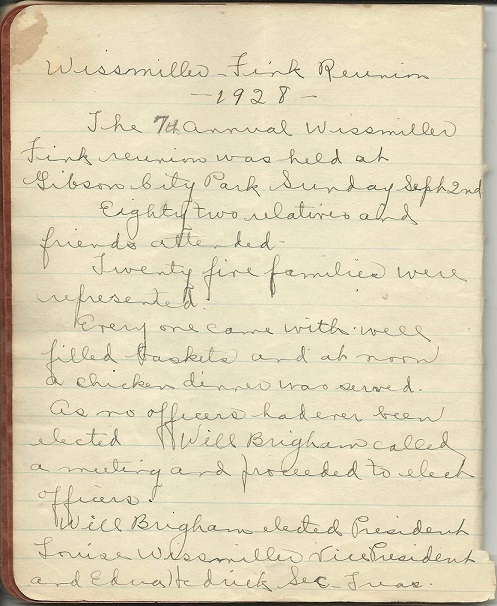 Wissmiller-Fink Reunion
-1928-
The 7th Annual Wissmiller
Fink reunion was held at
Gibson City Park Sunday Sept 2nd
Eighty two relatives and
friends attended.
Twenty five families were
represented.
Every one came with well
filled baskets and at noon
a chicken dinner was served.
As no officers had ever been
elected Will Brigham called
a meeting and proceeded to elect
officers.
Will Brigham elected President
Louise Wissmiller Vice President
and Edna Hedrick Sec-Treas.